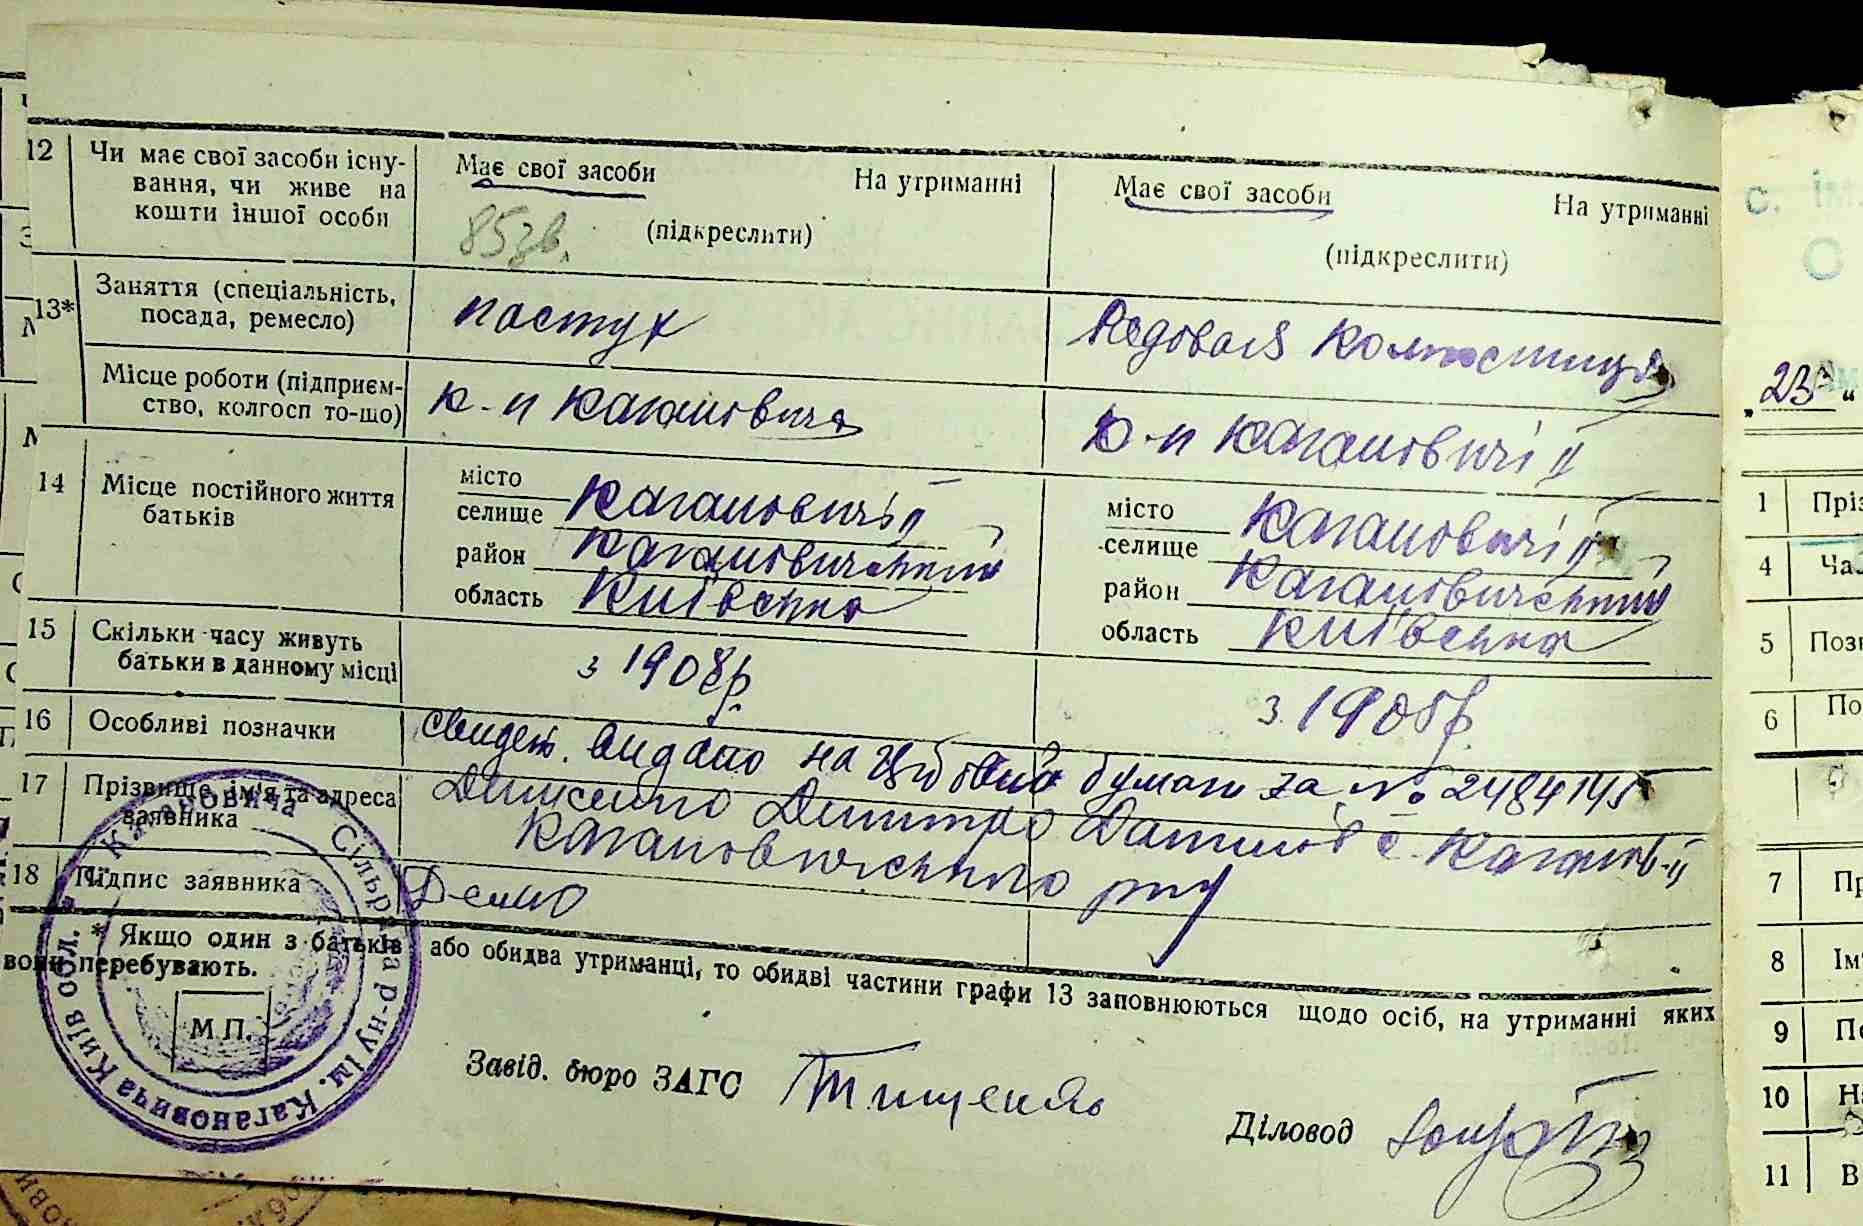 12 Чи має свої засоби існу-
вання, чи живе на
кошти іншої особи
Має свої засоби На утриманні
(підкреслити)
85
Має свої засоби На утриманні
(підкреслити)
13* Заняття (спеціальність,
посада, ремесло)
пастух
Рядовая
Місце роботи (підприєм-
ство, колгосп то-що)
к-п Кагановича
к-п Кагановичі ІІ
14 Місце постійного життя
батьків
місто
селище Кагановичі ІІ
район Кагановичський
область Київська
місто
селище Кагановичі ІІ
район Кагановичський
область Київська
15 Скільки часу живуть
батьки в данному місці
з 1908 р.
з 1908 р.
16 Особливі позначки
видано на бумаги за № 2484145
17 Прізвище, ім'я та адреса
заявника
Дмитро с. Каганов-ІІ
Кагановичського р-ну
18 Підпис заявника
* Якщо один з батьків або обидва утриманці, то обидві частини графи 13 заповнюються щодо осіб, на утриманні яких
вони перебувають.
М.П.
Кагановича Сільрада р-ну ім. Кагановича Київ обл.
Завід. бюро ЗАГС Тищенко
Діловод
с. ім.
„23“
1 Пріз
4 Ча
5 Позн
6 По
7 Пр
8 Ім'
9 По
10 На
11 В